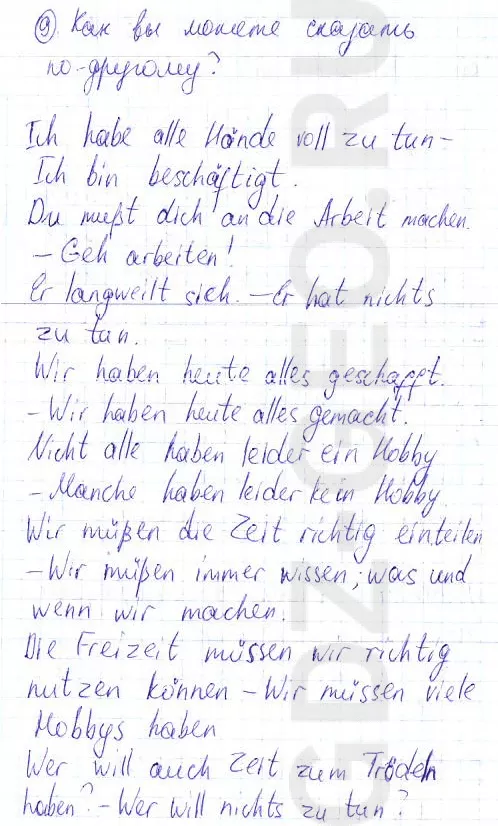 9) Как вы можете сказать
по-другому?
Ich habe alle Hände voll zu tun -
Ich bin beschäftigt.
Du mußt dich an die Arbeit machen.
- Geh arbeiten!
Er langweilt sich. - Er hat nichts
zu tun.
Wir haben heute alles geschafft.
- Wir haben heute alles gemacht.
Nicht alle haben leider ein Hobby
- Manche haben leider kein Hobby
Wir müßen die Zeit richtig einteilen
- Wir müßen immer wissen, was und
wenn wir machen.
Die Freizeit müssen wir richtig
nutzen können - Wir müssen viele
Hobbys haben
Wer will auch Zeit zum Trödeln
haben? - Wer will nichts zu tun?
GDZ-GEO.RU